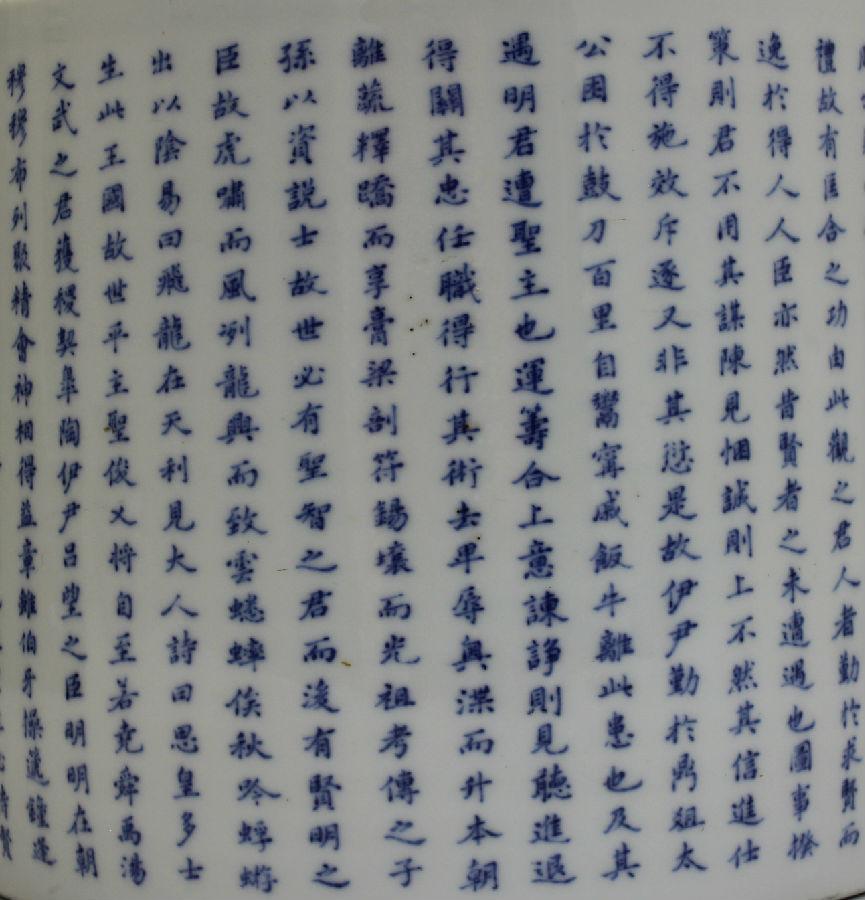 禮故有匡合之功由此觀之君人者勤於求賢而
逸於得人人臣亦然昔賢者之未遭遇也圖事揆
策則君不用其謀陳見悃誠則上不然其信進仕
不得施效斥逐又非其愆是故伊尹勤於鼎俎太
公困於鼓刀百里自鬻甯戚飯牛離此患也及其
遇明君遭聖主也運籌合上意諫諍則見聽進退
得關其忠任職得行其術去卑辱奧渫而升本朝
離蔬釋蹻而享膏粱剖符錫壤而光祖考傳之子
孫以資說士故世必有聖智之君而後有賢明之
臣故虎嘯而風冽龍興而致雲蟋蟀俟秋吟蜉蝣
出以陰易曰飛龍在天利見大人詩曰思皇多士
生此王國故世平主聖俊乂將自至若堯舜禹湯
文武之君獲稷契皐陶伊尹呂望之臣明明在朝
穆穆布列聚精會神相得益章雖伯牙操遞鐘逢